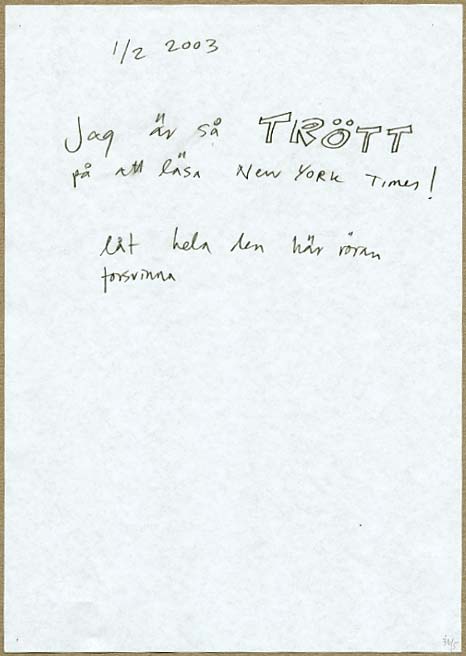 1/2 2003
Jag är så TRÖTT
på att läsa New York Times!
låt hela den här röran
försvinna